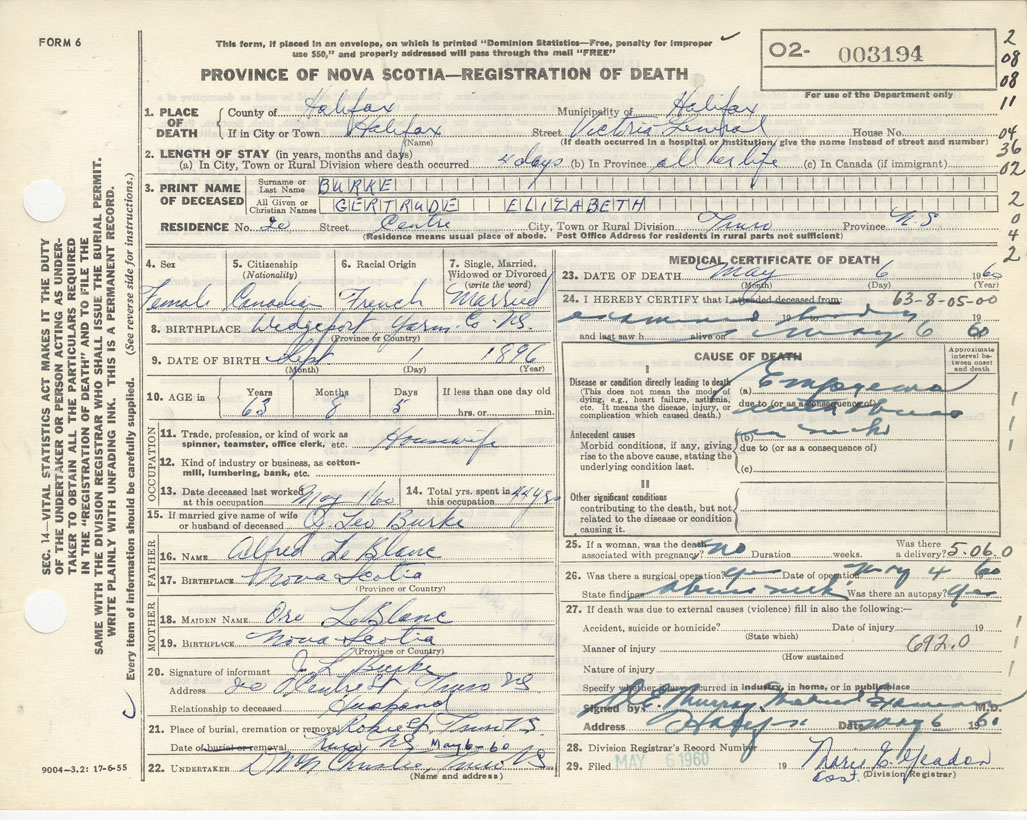 FORM 6
This form, if placed in an envelope, on which is printed "Dominion Statistics—Free, penalty for improper
use $50," and properly addressed will pass through the mail "FREE"
PROVINCE OF NOVA SCOTIA—REGISTRATION OF DEATH
O2- 003194
For use of the Department only
2
08
08
11
04
36
02
2
0
4
2
SEC. 14—VITAL STATISTICS ACT MAKES IT THE DUTY
OF THE UNDERTAKER OR PERSON ACTING AS UNDER-
TAKER TO OBTAIN ALL THE PARTICULARS REQUIRED
IN THE "REGISTRATION OF DEATH" AND TO FILE THE
SAME WITH THE DIVISION REGISTRAR WHO SHALL ISSUE THE BURIAL PERMIT.
WRITE PLAINLY WITH UNFADING INK. THIS IS A PERMANENT RECORD.
Every item of information should be carefully supplied. (See reverse side for instructions.)
1. PLACE OF DEATH
County of Halifax Municipality of Halifax
If in City or Town Halifax Street Victoria General House No.
(Name) (If death occurred in a hospital or institution, give the name instead of street and number)
2. LENGTH OF STAY (in years, months and days)
(a) In City, Town or Rural Division where death occurred 4 days (b) In Province all her life (c) In Canada (if immigrant)
3. PRINT NAME OF DECEASED
Surname or Last Name BURKE
All Given or Christian Names GERTRUDE ELIZABETH
RESIDENCE No. 20 Street Centre City, Town or Rural Division Truro Province N.S
(Residence means usual place of abode. Post Office Address for residents in rural parts not sufficient)
4. Sex 5. Citizenship (Nationality) 6. Racial Origin 7. Single, Married, Widowed or Divorced (write the word)
Female Canadian French Married
8. BIRTHPLACE Wedgeport, Yarm. Co. N.S.
(Province or Country)
9. DATE OF BIRTH Sept 1 1896
(Month) (Day) (Year)
10. AGE in Years Months Days If less than one day old
63 8 5 hrs. or min.
OCCUPATION
11. Trade, profession, or kind of work as spinner, teamster, office clerk, etc. Housewife
12. Kind of industry or business, as cotton-mill, lumbering, bank, etc.
13. Date deceased last worked at this occupation May 1 60 14. Total yrs. spent in this occupation 44 yrs
15. If married give name of wife or husband of deceased J. Leo Burke
FATHER
16. NAME Alfred LeBlanc
17. BIRTHPLACE Nova Scotia
(Province or Country)
MOTHER
18. MAIDEN NAME LeBlanc
19. BIRTHPLACE Nova Scotia
(Province or Country)
20. Signature of informant J. L. Burke
Address 20 Centre St, Truro NS
Relationship to deceased Husband
21. Place of burial, cremation or removal Robie St. Truro NS
Date of burial or removal Truro NS May 6-60
22. UNDERTAKER Truro NS
(Name and address)
9004-3.2: 17-6-55
MEDICAL CERTIFICATE OF DEATH
23. DATE OF DEATH May 6 1960
(Month) (Day) (Year)
24. I HEREBY CERTIFY that I attended deceased from: 63-8-05-00
examined body 19
and last saw h alive on May 6 60
CAUSE OF DEATH
Approximate interval between onset and death
I
Disease or condition directly leading to death
(This does not mean the mode of dying, e.g., heart failure, asthenia, etc. It means the disease, injury, or complication which caused death.)
(a) Empyema
due to (or as a consequence of)
with abscess
Antecedent causes
Morbid conditions, if any, giving rise to the above cause, stating the underlying condition last.
(b) in neck
due to (or as a consequence of)
(c)
1
1
1
II
Other significant conditions
contributing to the death, but not related to the disease or condition causing it.
25. If a woman, was the death associated with pregnancy? no Duration weeks. Was there a delivery? 5.06.0
26. Was there a surgical operation? yes Date of operation May 4 1960
State findings Abscess neck Was there an autopsy? Yes
27. If death was due to external causes (violence) fill in also the following:—
Accident, suicide or homicide? Date of injury 19
(State which)
Manner of injury 692.0
(How sustained)
Nature of injury
Specify whether injury occurred in industry, in home, or in public place
1
1
1
Signed by Murray Medical Examiner M.D.
Address Halifax Date May 6 1960
28. Division Registrar's Record Number
29. Filed MAY 6 1960 19
(Division Registrar)